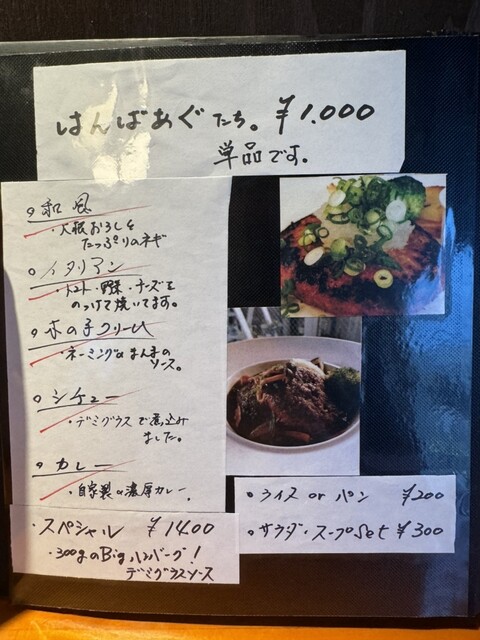 はんばあぐたち。¥1.000
単品です。
○和風
・大根おろしと
たっぷりのネギ
○イタリアン
・トマト・野菜・チーズを
のっけて焼いてます。
○木の子クリーム
・ネーミングのまんまの
ソース。
○シチュー
・デミグラスで煮込み
ました。
○カレー
・自家製の濃厚カレー。
・スペシャル ¥1400
・300gのBigハンバーグ!
デミグラスソース
○ライス or パン ¥200
○サラダ・スープSet ¥300